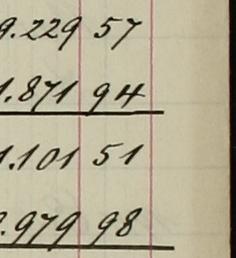 9.229 57
1.871 94
1.101 51
.979 98